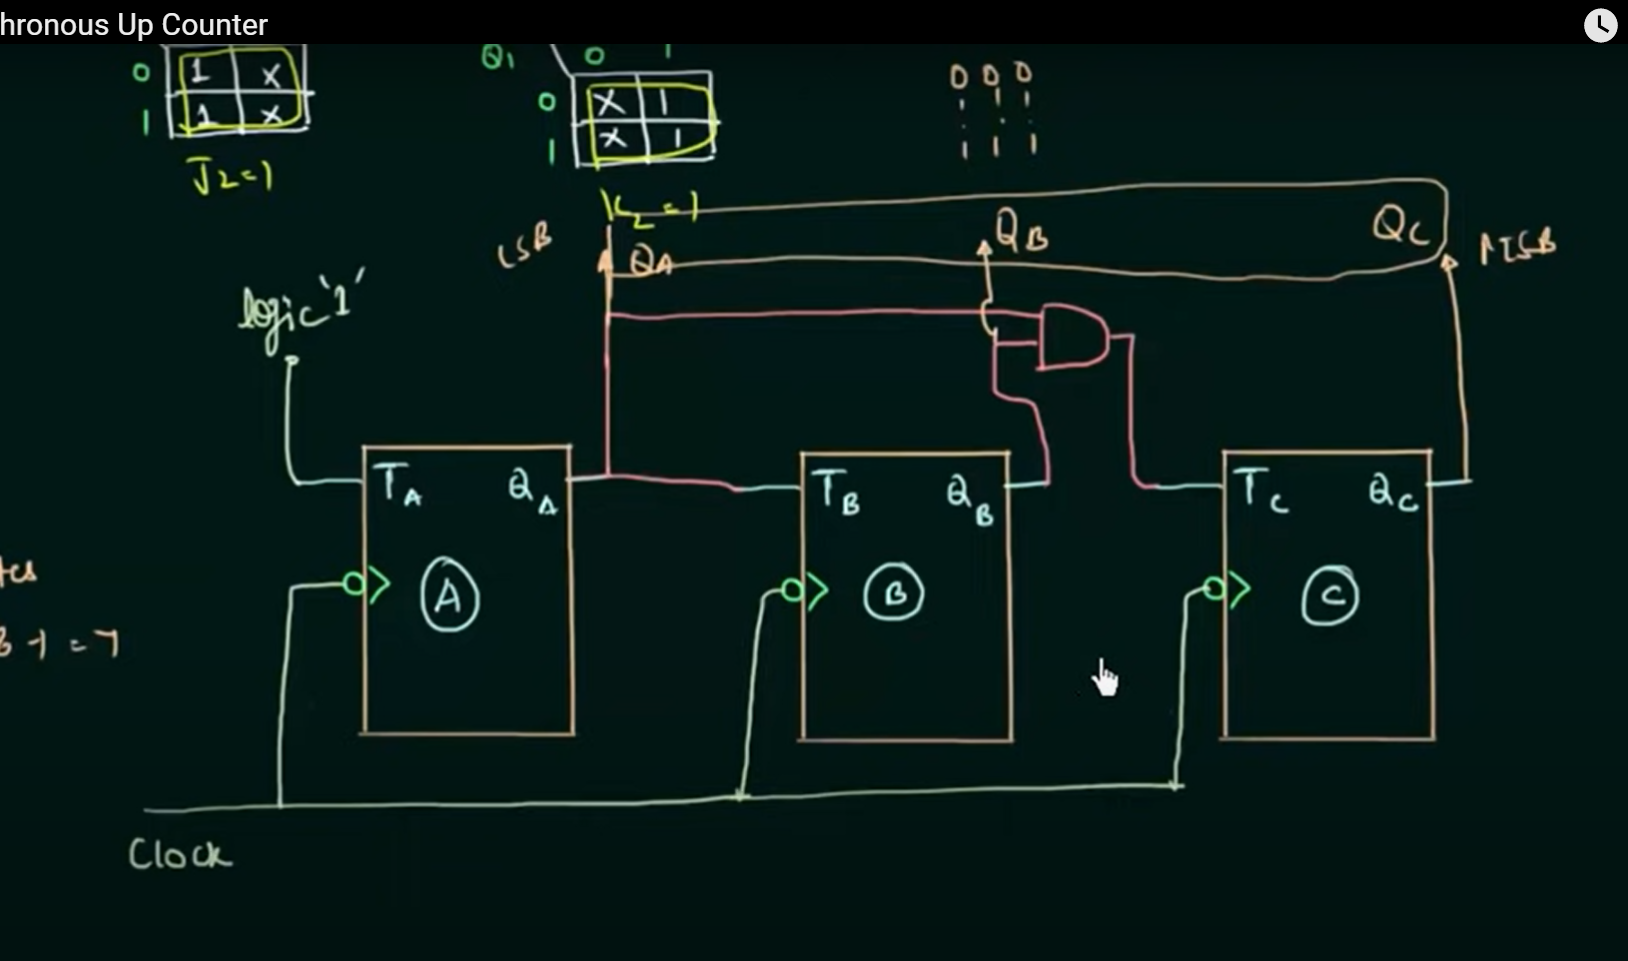 hronous Up Counter
Q1 0 1
0 1 X
1 1 X
J2=1
0 X 1
1 X 1
K2=1
0 0 0
1 1 1
LSB QA QB QC MSB
logic '1'
TA QA TB QB TC QC
A B C
8-1=7
Clock